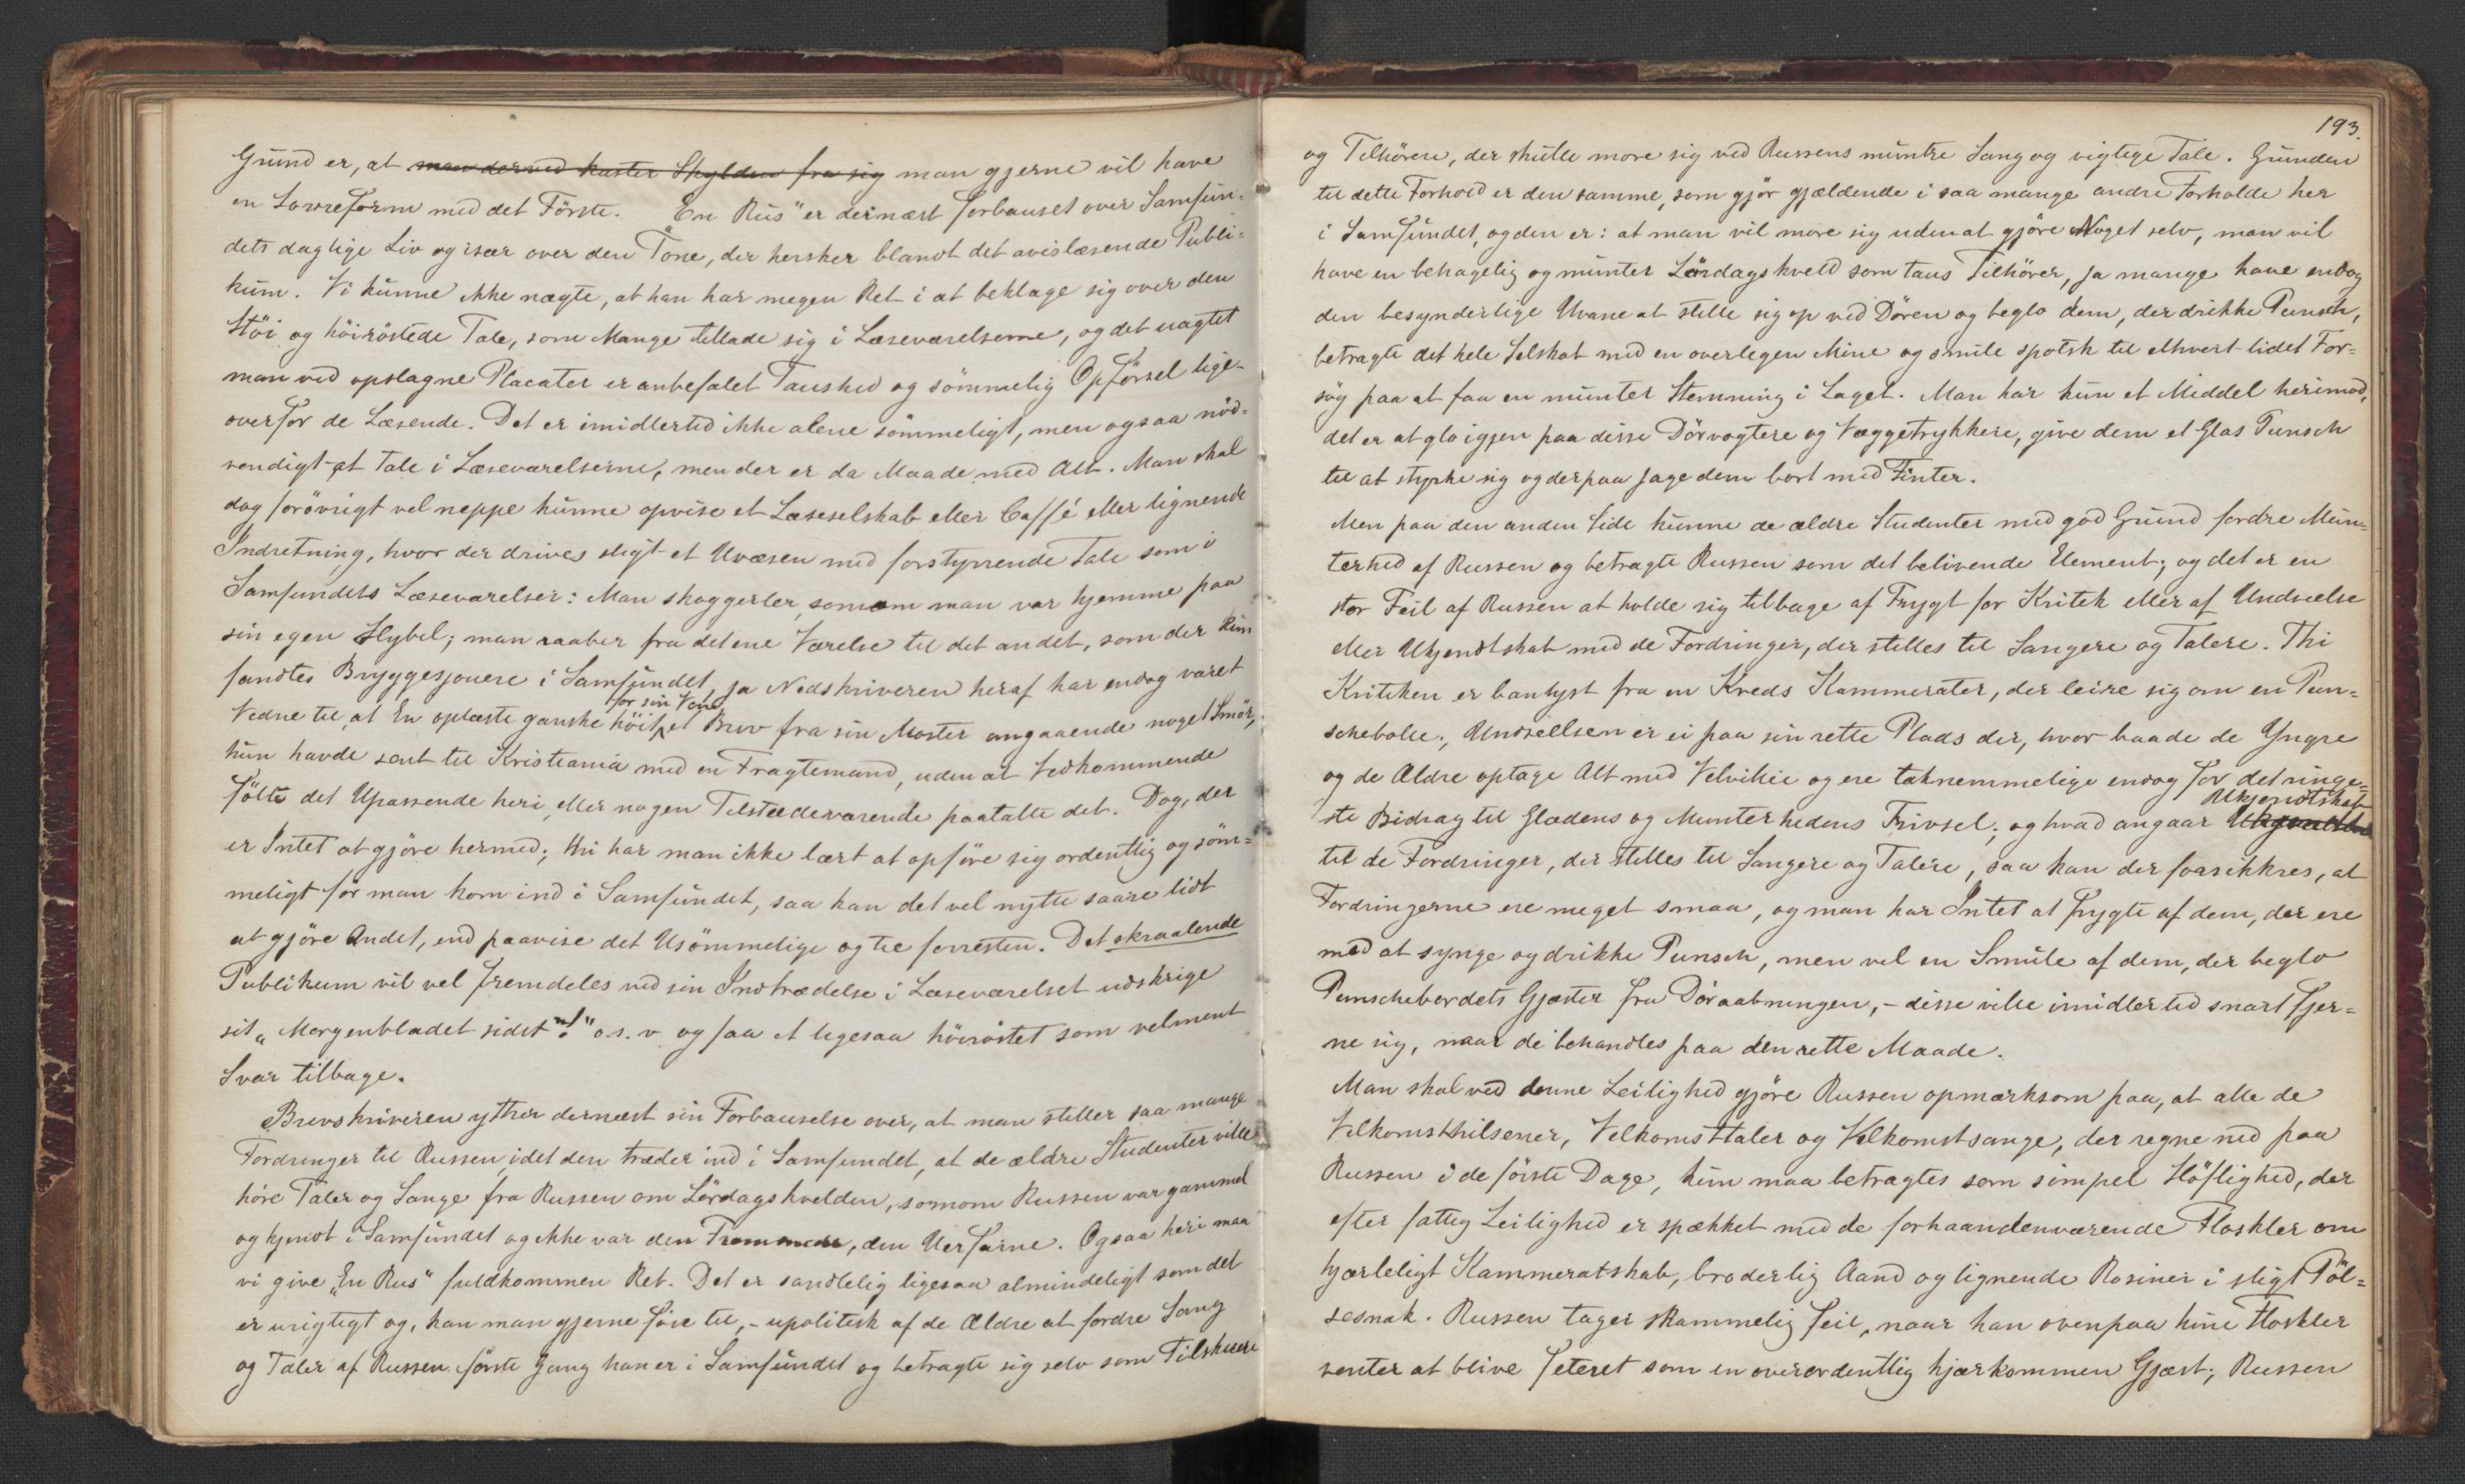 Grund er, at man derved kaster Skylden fra sig man gjerne vil have
en Lovreform med det Förste. „En Rus" er dernæst forbauset over Samfun-
dets daglige Liv og især over den Tone, der hersker blandt det avislæsende Publi-
kum. Vi kunne ikke nægte, at han har megen Ret i at beklage sig over den
Stöi og höiröstede Tale, som Mange tillade sig i Læseværelserne, og det uagtet
man ved opslagne Placater er anbefalet Taushed og sömmelig Opförsel lige-
overfor de Læsende. Det er imidlertid ikke alene sömmeligt, men ogsaa nöd-
vendigt at Tale i Læseværelserne, men der er da Maade med Alt. Man skal
dog forövrigt vel neppe kunne opvise et Læseselskab eller Caffé eller lignende
Indretning, hvor der drives sligt et Uvæsen med forstyrrende Tale som i
Samfundets Læseværelser: Man skoggerler, somom man var hjemme paa
sin egen Hybel; man raaber fra det ene Værelse til det andet, som der kun
fandtes Bryggesjouere i Samfundet, ja Nedskriveren heraf har endog været
for sin Ven
Vidne til, at En oplæste ganske höit et Brev fra sin Moster angaaende noget Smör,
hun havde sent til Kristiania med en Fragtemand, uden at Vedkommende
fölte det Upassende heri, eller nogen Tilstedeværende paatalte det. Dog, der
er Intet at gjöre hermed; thi har man ikke lært at opföre sig ordentlig og söm-
meligt för man kom ind i Samfundet, saa kan det vel nytte saare lidt
at gjöre Andet, end paavise det Usömmelige og tie forresten. Det skraalende
Publikum vil vel fremdeles ved sin Indtrædelse i Læseværelset udskrige
sit „Morgenbladet sidst"! o.s.v og faa et ligesaa höiröstet som velment
Svar tilbage.
Brevskriveren yttrer dernæst sin Forbauselse over, at man stiller saa mange
Fordringer til Russen, idet den træder ind i Samfundet, at de ældre Studenter ville
höre Taler og Sange fra Russen om Lördagskvelden, somom Russen var gammel
og kjendt i Samfundet og ikke var den Fremmede, den Uerfarne. Ogsaa heri maa
vi give „En Rus" fuldkommen Ret. Det er sandelig ligesaa almindeligt som det
er urigtigt og, kan man gjerne föie til, - upolitisk af de Ældre at fordre Sang
og Taler af Russen förste Gang han er i Samfundet og betragte sig selv som Tilskuere
193.
og Tilhörere, der skulle more sig ved Russens muntre Sang og vigtige Tale. Grunden
til dette Forhold er den samme, som gjör gjældende i saa mange andre Forholde her
i Samfundet, og den er: at man vil more sig uden at gjöre Noget selv, man vil
have en behagelig og munter Lördagskveld som taus Tilhörer, ja mange have endog
den besynderlige Uvane at stille sig op ved Dören og beglo dem, der drikke Punsch,
betragte det hele Selskab med en overlegen Mine og smile spotsk til ethvert lidet For-
sög paa at faa en munter Stemning i Laget. Man har kun et Middel herimod,
det er at glo igjen paa disse Dörvogtere og Væggetrykkere, give dem et Glas Punsch
til at styrke sig og derpaa jage dem bort med Finter.
Men paa den anden Side kunne de ældre Studenter med god Grund fordre Mun-
terhed af Russen og betragte Russen som det belivende Element; og det er en
stor Feil af Russen at holde sig tilbage af Frygt for Kritik eller af Undseelse
eller Ukjendtskab med de Fordringer, der stilles til Sangere og Talere. Thi
Kritiken er banlyst fra en Kreds Kammerater, der leire sig om en Pun-
schebolle; Undseelsen er ei paa sin rette Plads der, hvor baade de Yngre
og de Ældre optage Alt med Velvilie og ere taknemmelige endog for det ringe-
Ukjendtskab
ste Bidrag til Glædens og Munterhedens Trivsel; og hvad angaar
til de Fordringer, der stilles til Sangere og Talere, saa kan der forsikkres, at
Fordringerne ere meget smaa, og man har Intet at frygte af dem, der ere
med at synge og drikke Punsch, men vel en Smule af dem, der beglo
Punschebordets Gjæster fra Döraabningen, - disse ville imidlertid snart fjer-
ne sig, naar de behandles paa den rette Maade.
Man skal ved denne Leilighed gjöre Russen opmærksom paa, at alle de
Velkomsthilsener, Velkomsttaler og Velkomstsange, der regne ned paa
Russen i de förste Dage, kun maa betragtes som simpel Höflighed, der
efter fattig Leilighed er spækket med de forhaandenværende Floskler om
hjærteligt Kammeratskab, broderlig Aand og lignende Rosiner i sligt Pöl-
sesnak. Russen tager skammelig feil, naar han ovenpaa hine Floskler
venter at blive feteret som en overordentlig kjærkommen Gjæst; Russen